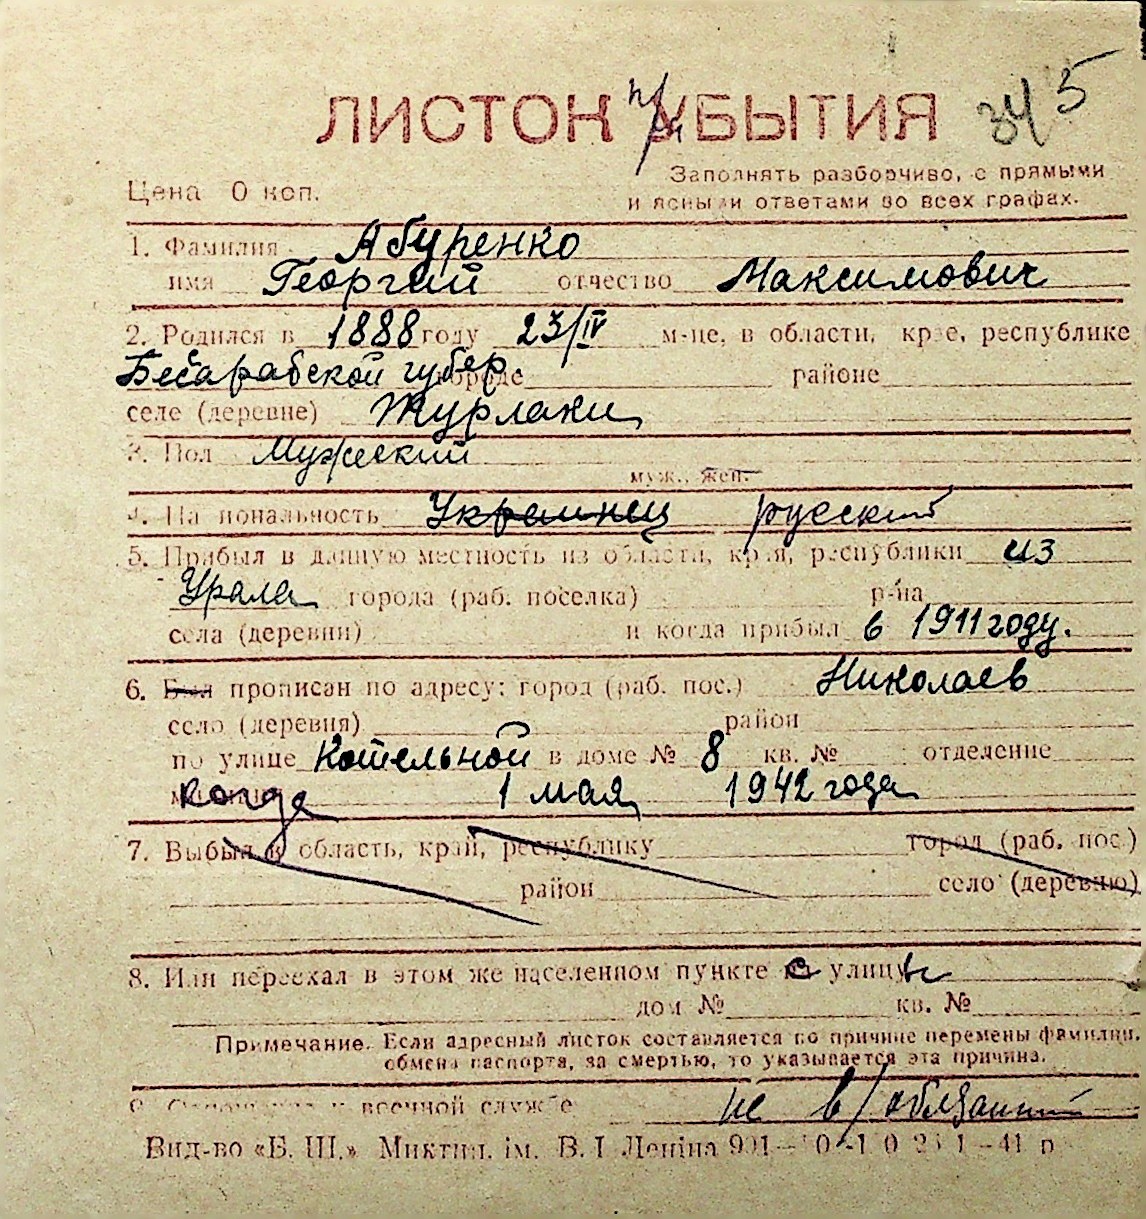 ЛИСТОК при УБЫТИЯ 345
Цена 0 коп. Заполнять разборчиво, с прямыми
и ясными ответами во всех графах.
1. Фамилия Абуренко
имя Георгий отчество Максимович
2. Родился в 1888 году 23/IV м-це, в области, крае, республике
Бесарабской губер. городе районе
селе (деревне) Журлаки
3. Пол Мужеский
муж., жен.
4. Национальность Украинец русский
5. Прибыл в данную местность из области, края, республики из
Урала города (раб. поселка) р-на
села (деревни) и когда прибыл в 1911 году.
6. Был прописан по адресу: город (раб. пос.) Николаев
село (деревня) район
по улице Котельной в доме № 8 кв. № отделение
когда 1 мая 1942 года
7. Выбыл в область, край, республику город (раб. пос.)
район село (деревню)
8. Или переехал в этом же населенном пункте с улицы
дом № кв. №
Примечание. Если адресный листок составляется по причине перемены фамилии,
обмена паспорта, за смертью, то указывается эта причина.
9. военной службе не в/обязанный
Вид-во «Б. Ш.» Миктип. ім. В. І Леніна